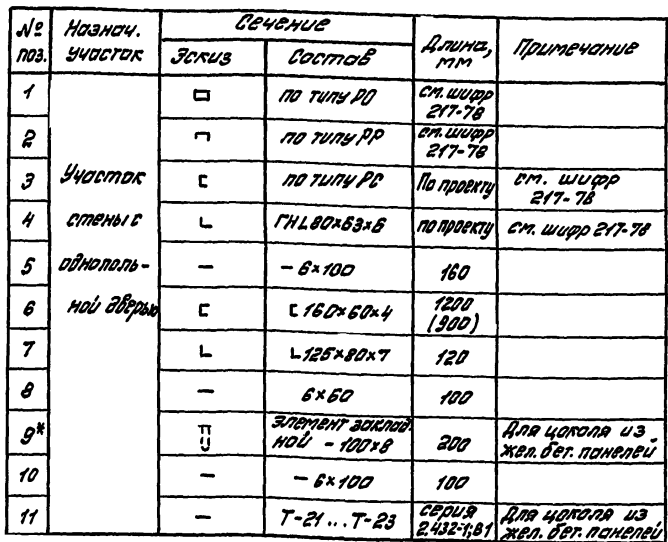 № поз.
Назнач. участок
Сечение
Эскиз
Состав
Длина, мм
Примечание
Участок стены с однополь-ной дверью
1 по типу РО см. шифр 217-78
2 по типу РР см. шифр 217-78
3 по типу РС По проекту см. шифр 217-78
4 ГНL80×63×6 по проекту см. шифр 217-78
5 – 6×100 160
6 [160×60×4 1200 (900)
7 L125×80×7 120
8 6×60 100
9* Элемент заклад. ной – 100×8 200 Для цоколя из жел. бет. панелей
10 – 6×100 100
11 Т-21...Т-23 серия 2.432-1;В1 Для цоколя из жел. бет. панелей